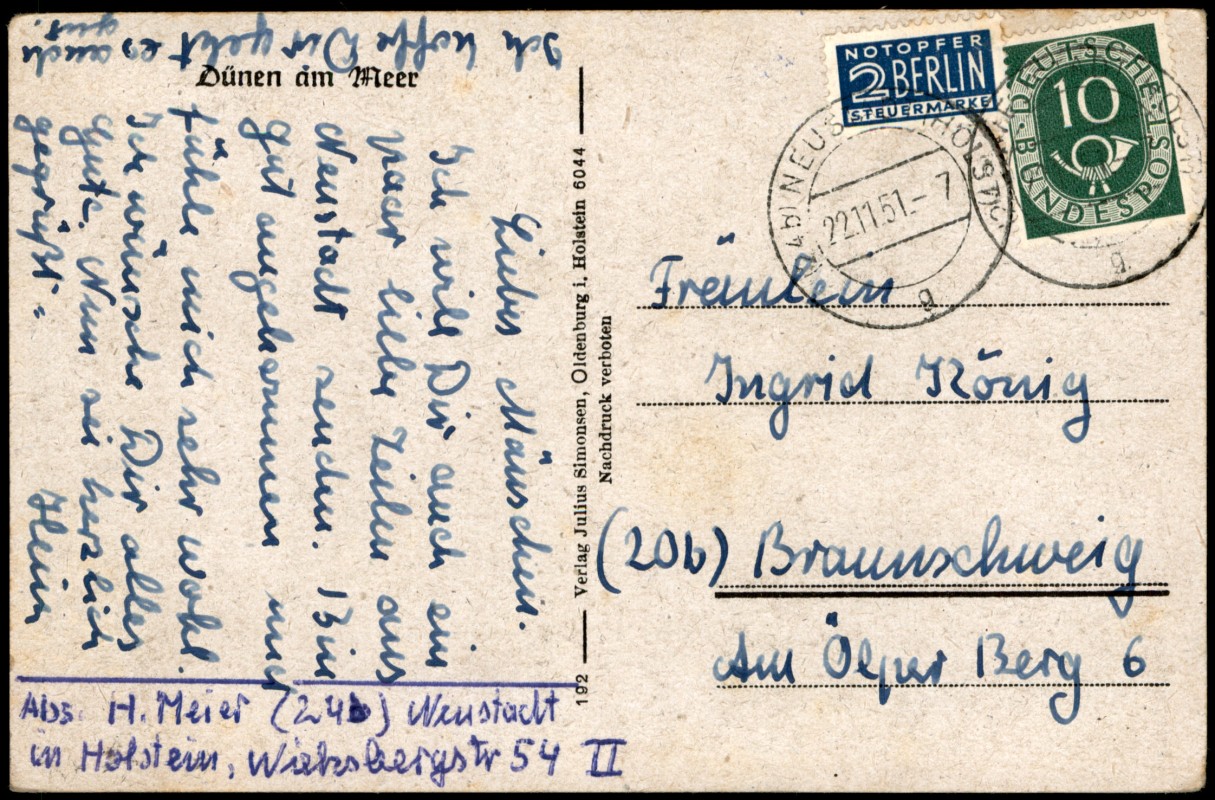 Dünen am Meer
Liebes Mäuschen.
Ich will Dir auch ein
paar liebe Zeilen aus
Neustadt senden. Bin
gut angekommen und
fühle mich sehr wohl.
Ich wünsche Dir alles
gute. Nun sei herzlich
gegrüßt =
Hein
Ich hoffe Dir geht es auch
gut.
Abs. H. Meier (24b) Neustadt
in Holstein, Wieksbergstr 54 II
192 Verlag Julius Simonsen, Oldenburg i. Holstein 6044
Nachdruck verboten
NOTOPFER
2 BERLIN
STEUERMARKE
DEUTSCHE BUNDESPOST
10
(24b) NEUSTADT (HOLST)
22.11.51.- 7
g
g
Fräulein
Ingrid König
(20b) Braunschweig
Am Ölper Berg 6